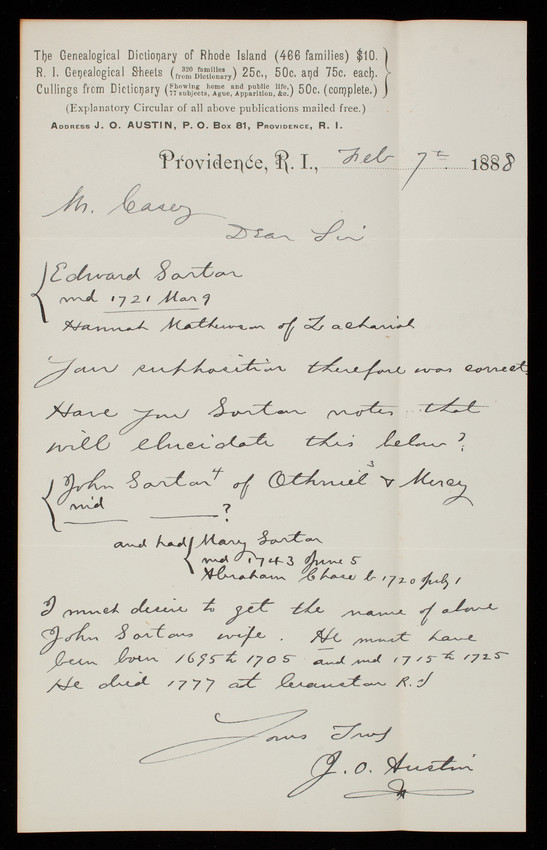 The Genealogical Dictionary of Rhode Island (466 families) $10.
R. I. Genealogical Sheets (320 families from Dictionary) 25c., 50c. and 75c. each.
Cullings from Dictionary (Showing home and public life, 77 subjects, Ague, Apparition, &c.) 50c. (complete.)
(Explanatory Circular of all above publications mailed free.)
ADDRESS J. O. AUSTIN, P. O. BOX 81, PROVIDENCE, R. I.
Providence, R. I., Feb 7th 1888
Mr. Casey
Dear Sir
Edward Sarton
md 1721 Mar 9
Hannah Mathewson of Zachariah
Your supposition therefore was correct.
Have you Sorton notes that
will elucidate this below?
John Sarton 4 of Othniel 3 & Mercy
md ?
and had Mary Sorton
md 1743 June 5
Abraham Chase b 1720 July 1
I much desire to get the name of above
John Sortons wife. He must have
been born 1695 to 1705 and md 1715 to 1725
He died 1777 at Cranston R.I
Yours Truly
J. O. Austin